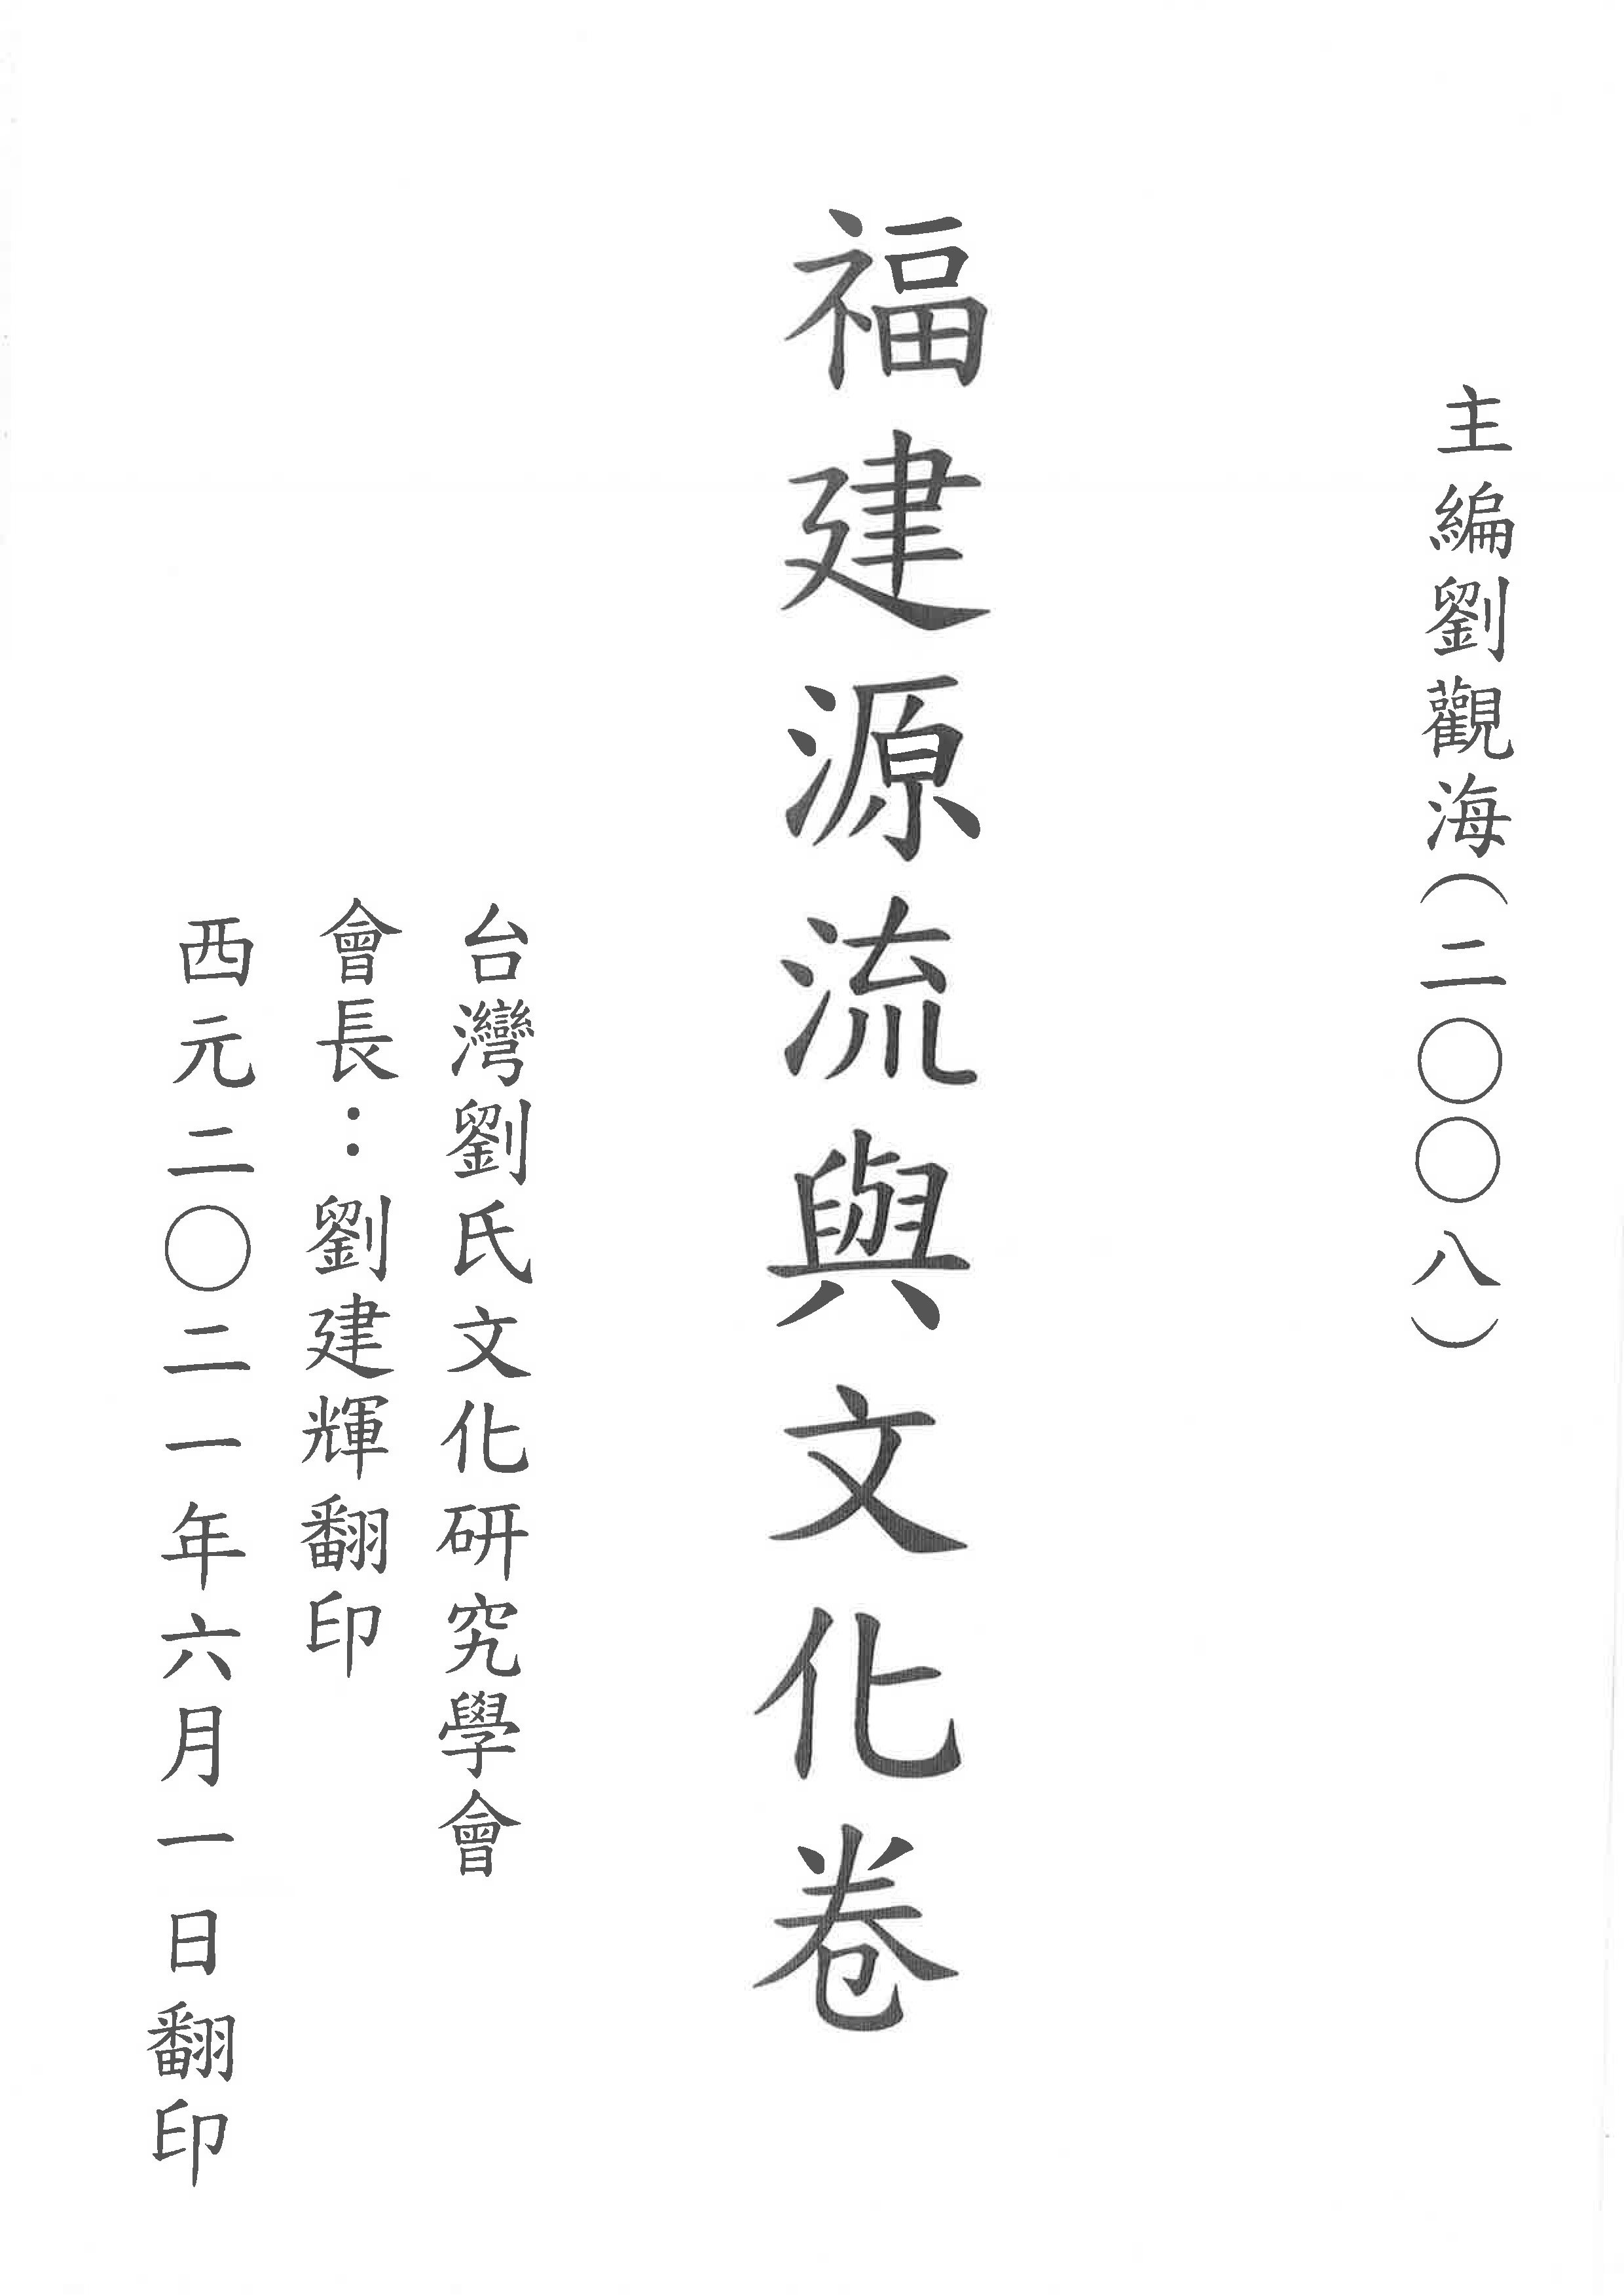 主編劉觀海(二〇〇八)
福建源流與文化卷
台灣劉氏文化研究學會
會長：劉建輝翻印
西元二〇二一年六月一日翻印